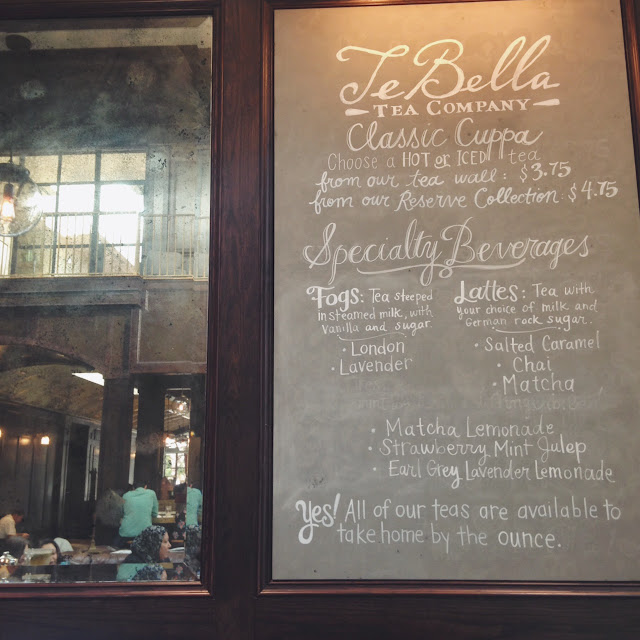 TeBella
TEA COMPANY
Classic Cuppa
Choose a HOT or ICED tea
from our tea wall: $3.75
from our Reserve Collection: $4.75
Specialty Beverages
Fogs: Tea steeped
in steamed milk, with
Vanilla and sugar.
• London
• Lavender
Lattes: Tea with
your choice of milk and
German rock sugar.
• Salted Caramel
• Chai
• Matcha
• Matcha Lemonade
• Strawberry Mint Julep
• Earl Grey Lavender Lemonade
Yes! All of our teas are available to
take home by the ounce.